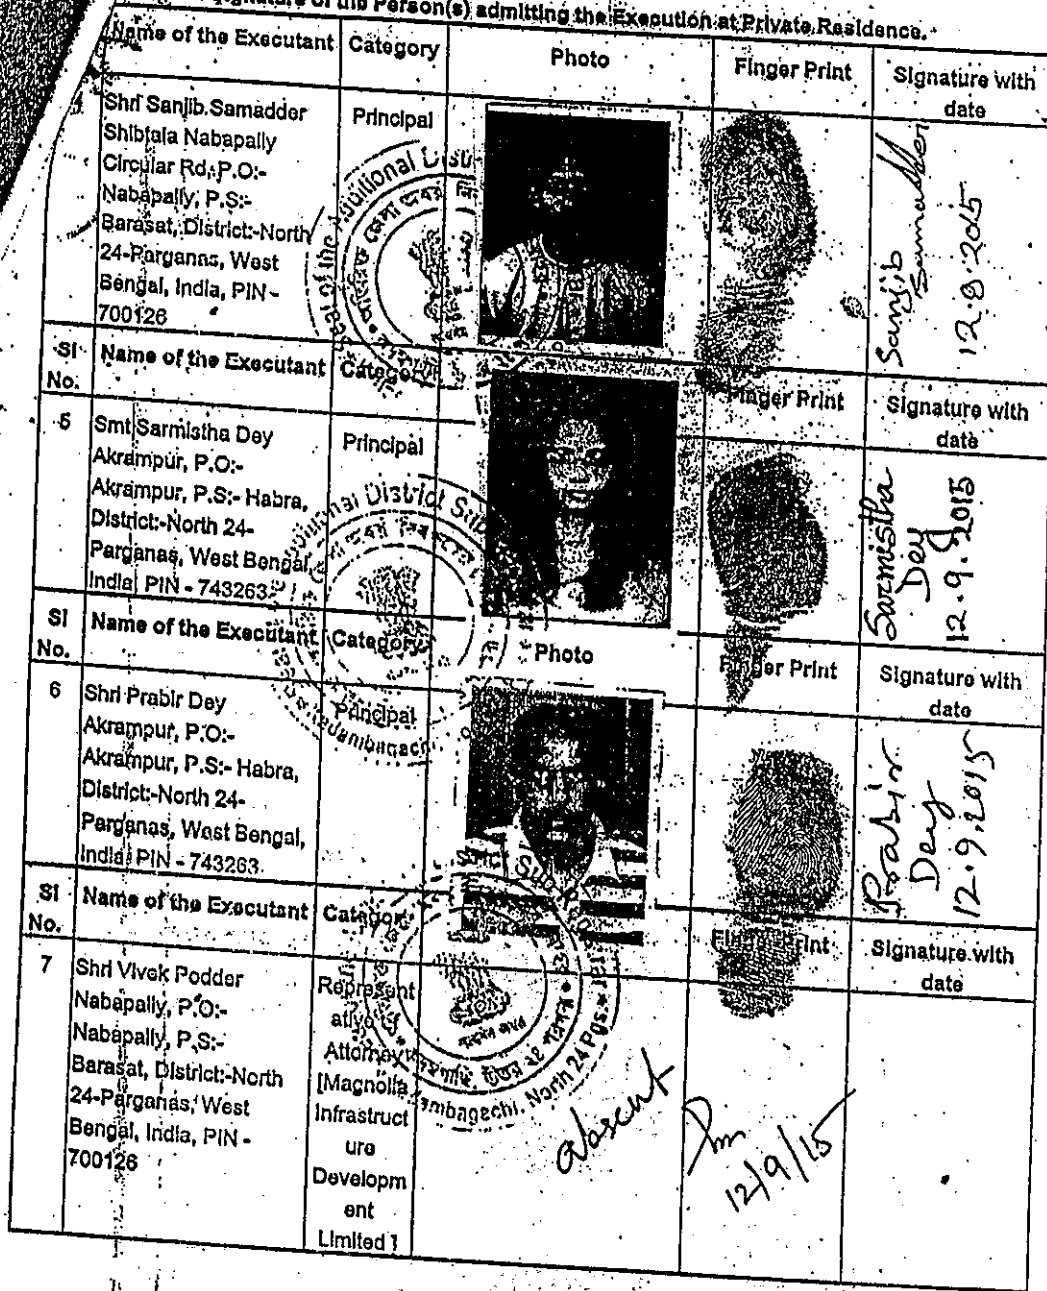 Signature of the Person(s) admitting the Execution at Private Residence.
Name of the Executant Category Photo Finger Print Signature with date
Shri Sanjib Samadder
Shibtala Nabapally
Circular Rd, P.O:-
Nabapally, P.S:-
Barasat, District:-North
24-Parganas, West
Bengal, India, PIN -
700126
Principal
Sanjib
Samadder
12.9.2015
Sl No. Name of the Executant Category Finger Print Signature with date
5
Smt Sarmistha Dey
Akrampur, P.O:-
Akrampur, P.S:- Habra,
District:-North 24-
Parganas, West Bengal,
India, PIN - 743263.
Principal
Sarmistha
Dey
12.9.2015
Sl No. Name of the Executant Category Photo Finger Print Signature with date
6
Shri Prabir Dey
Akrampur, P.O:-
Akrampur, P.S:- Habra,
District:-North 24-
Parganas, West Bengal,
India, PIN - 743263.
Principal
Prabir
Dey
12.9.2015
Sl No. Name of the Executant Category Finger Print Signature with date
7
Shri Vivek Podder
Nabapally, P.O:-
Nabapally, P.S:-
Barasat, District:-North
24-Parganas, West
Bengal, India, PIN -
700126
Represent
ative
Attorney
[Magnolia
Infrastruct
ure
Developm
ent
Limited ]
absent
12/9/15